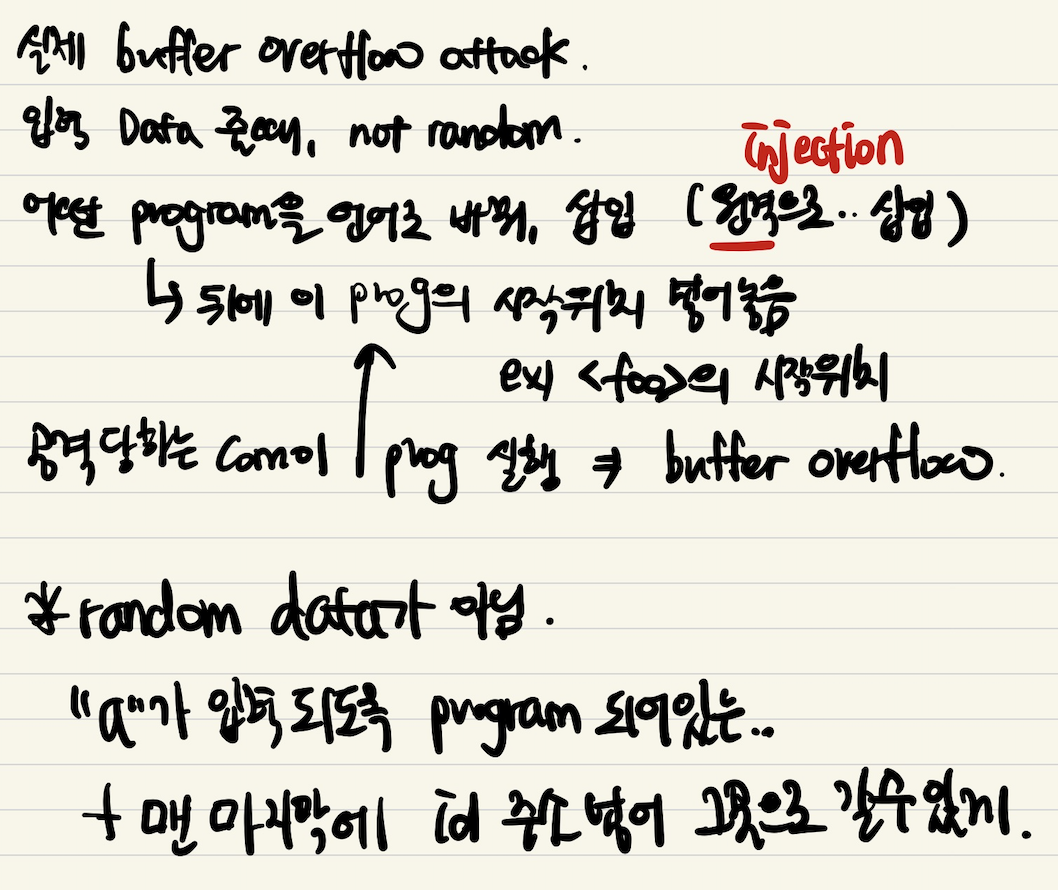 실제 buffer overflow attack.
입력 Data 줄때, not random.
injection
어떤 program을 언어로 바꿔, 삽입 (원격으로.. 삽입)
↳ 뒤에 이 prog의 시작위치 넣어놓음
ex) <foo>의 시작위치
공격당하는 Com이 prog 실행 ⇒ buffer overflow.
* random data가 아님.
"a"가 입력되도록 program 되어있는..
+ 맨 마지막에 주소 넣어 그곳으로 갈수있게.